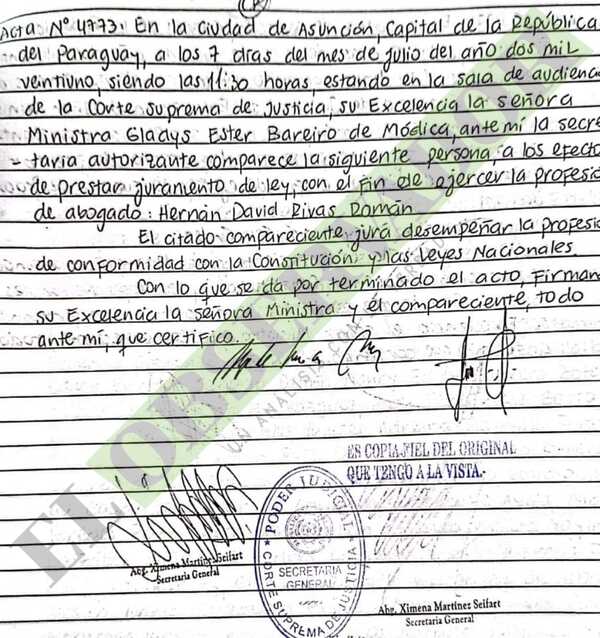 Acta N° 4773. En la ciudad de Asunción, Capital de la República
del Paraguay, a los 7 días del mes de julio del año dos mil
veintiuno, siendo las 11:30 horas, estando en la sala de audienc
de la Corte suprema de Justicia, su Excelencia la señora
Ministra Gladys Ester Bareiro de Módica, ante mí la secre
- taria autorizante comparece la siguiente persona, a los efecto
de prestar juramento de ley, con el fin de ejercer la profesió
de abogado: Hernán David Rivas Román
El citado compareciente jura desempeñar la profesió
de conformidad con la Constitución y las Leyes Nacionales.
Con lo que se da por terminado el acto, Firman
su Excelencia la señora Ministra y el compareciente, todo
ante mí, que certifico.
ES COPIA FIEL DEL ORIGINAL
QUE TENGO A LA VISTA.-
PODER JUDICIAL
SECRETARIA
GENERAL
CORTE SUPREMA DE JUSTICIA
Abg. Ximena Martínez Seifart
Secretaria General
Abg. Ximena Martínez Seifart
Secretaria General
EL OBSERVADOR
UN ANALISIS